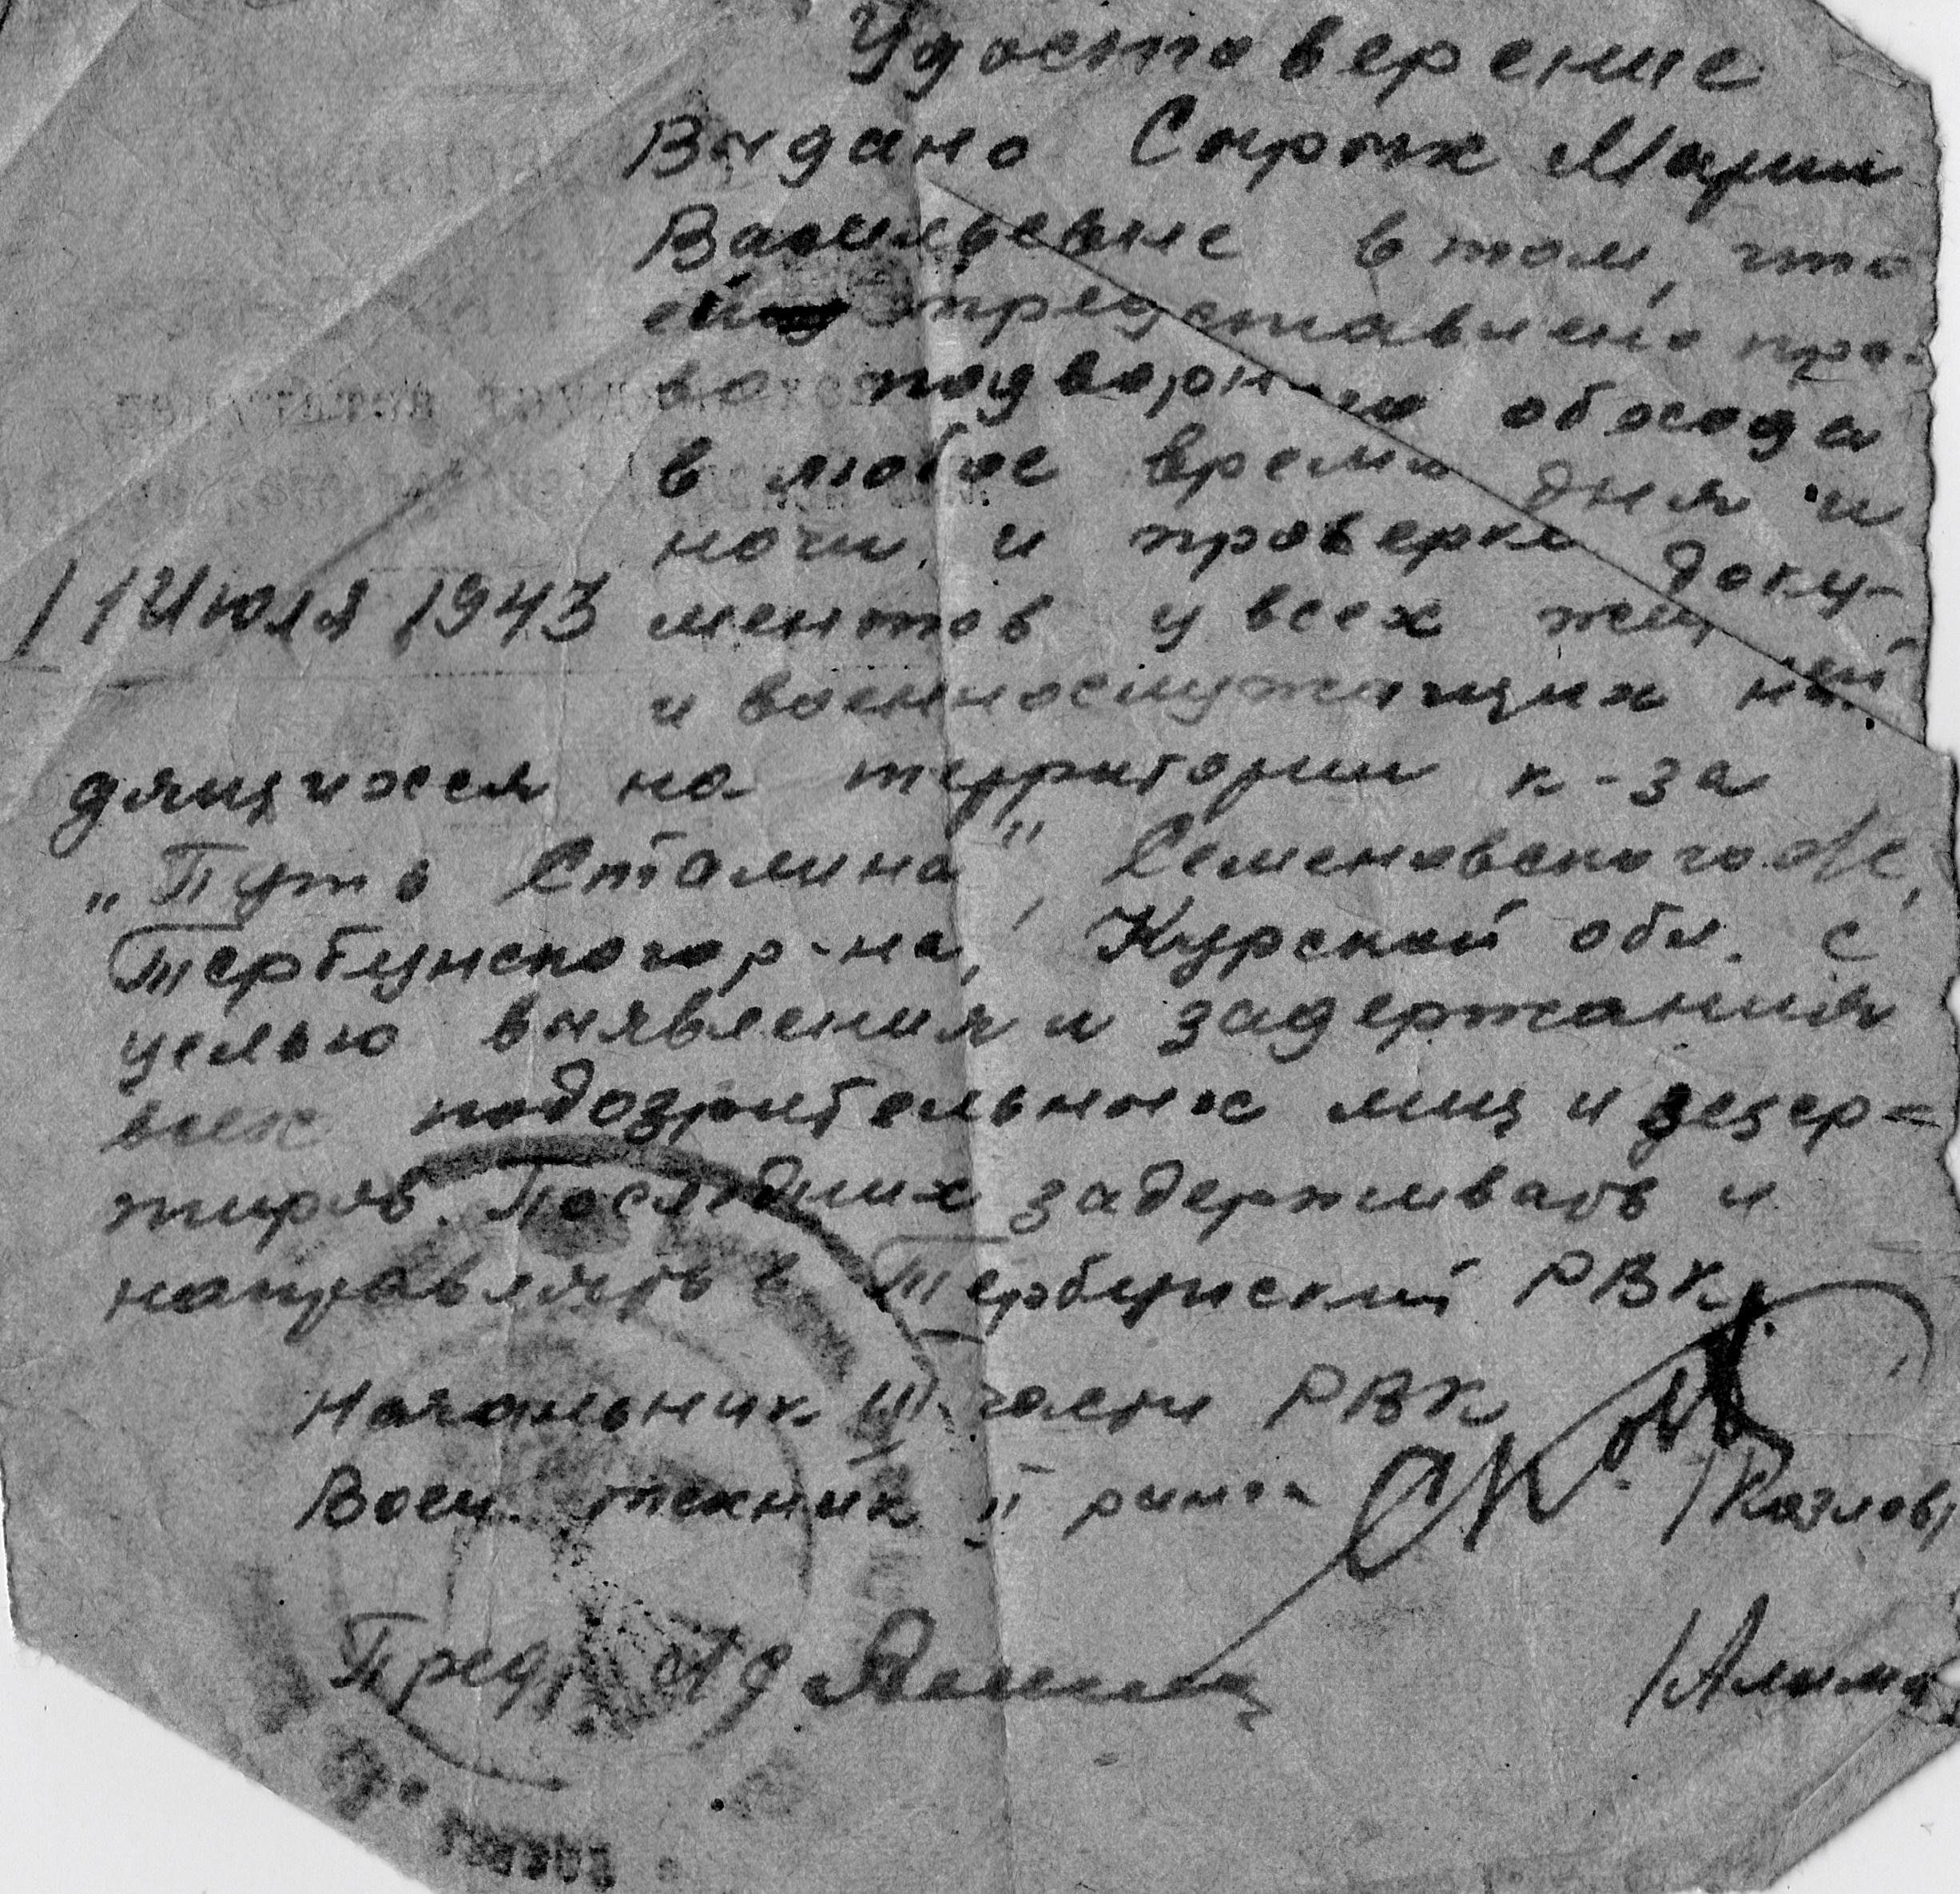 Удостоверение
Выдано Сырых Марии
Васильевне в том, что
ей предоставлено пра-
во подворного обхода
в любое время дня и
ночи и проверки доку-
1 Июля 1943 ментов у всех
и военнослужащих
дящихся на территории к-за
„Путь Сталина", Семеновского с/с,
Тербунского р-на, Курской обл. с
целью выявления и задержания
всех подозрительных лиц и дезер-
тиров. Последних задерживать и
направлять в Тербунский РВК.
Начальник III части РВК
Воен. техник II ранга /Козлов/
Пред.